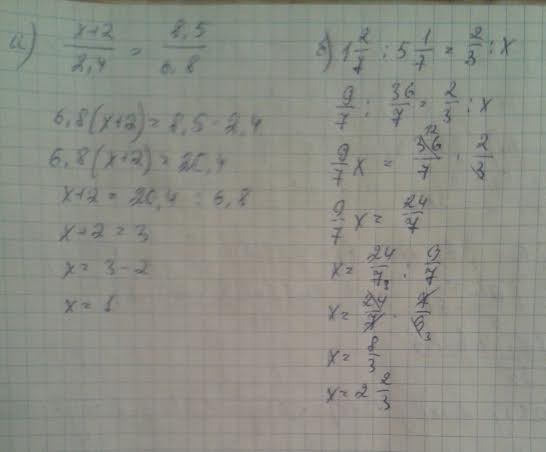 а) x+2/2,4 = 8,5/6,8
6,8(x+2)=8,5·2,4
6,8(x+2)=20,4
x+2=20,4:6,8
x+2=3
x=3-2
x=1
б) 1 2/7 : 5 1/7 = 2/3 : x
9/7 : 36/7 = 2/3 : x
9/7 x = 36/7 · 2/3
9/7 x = 24/7
x = 24/7 : 9/7
x = 24/7 · 7/9
x = 8/3
x = 2 2/3